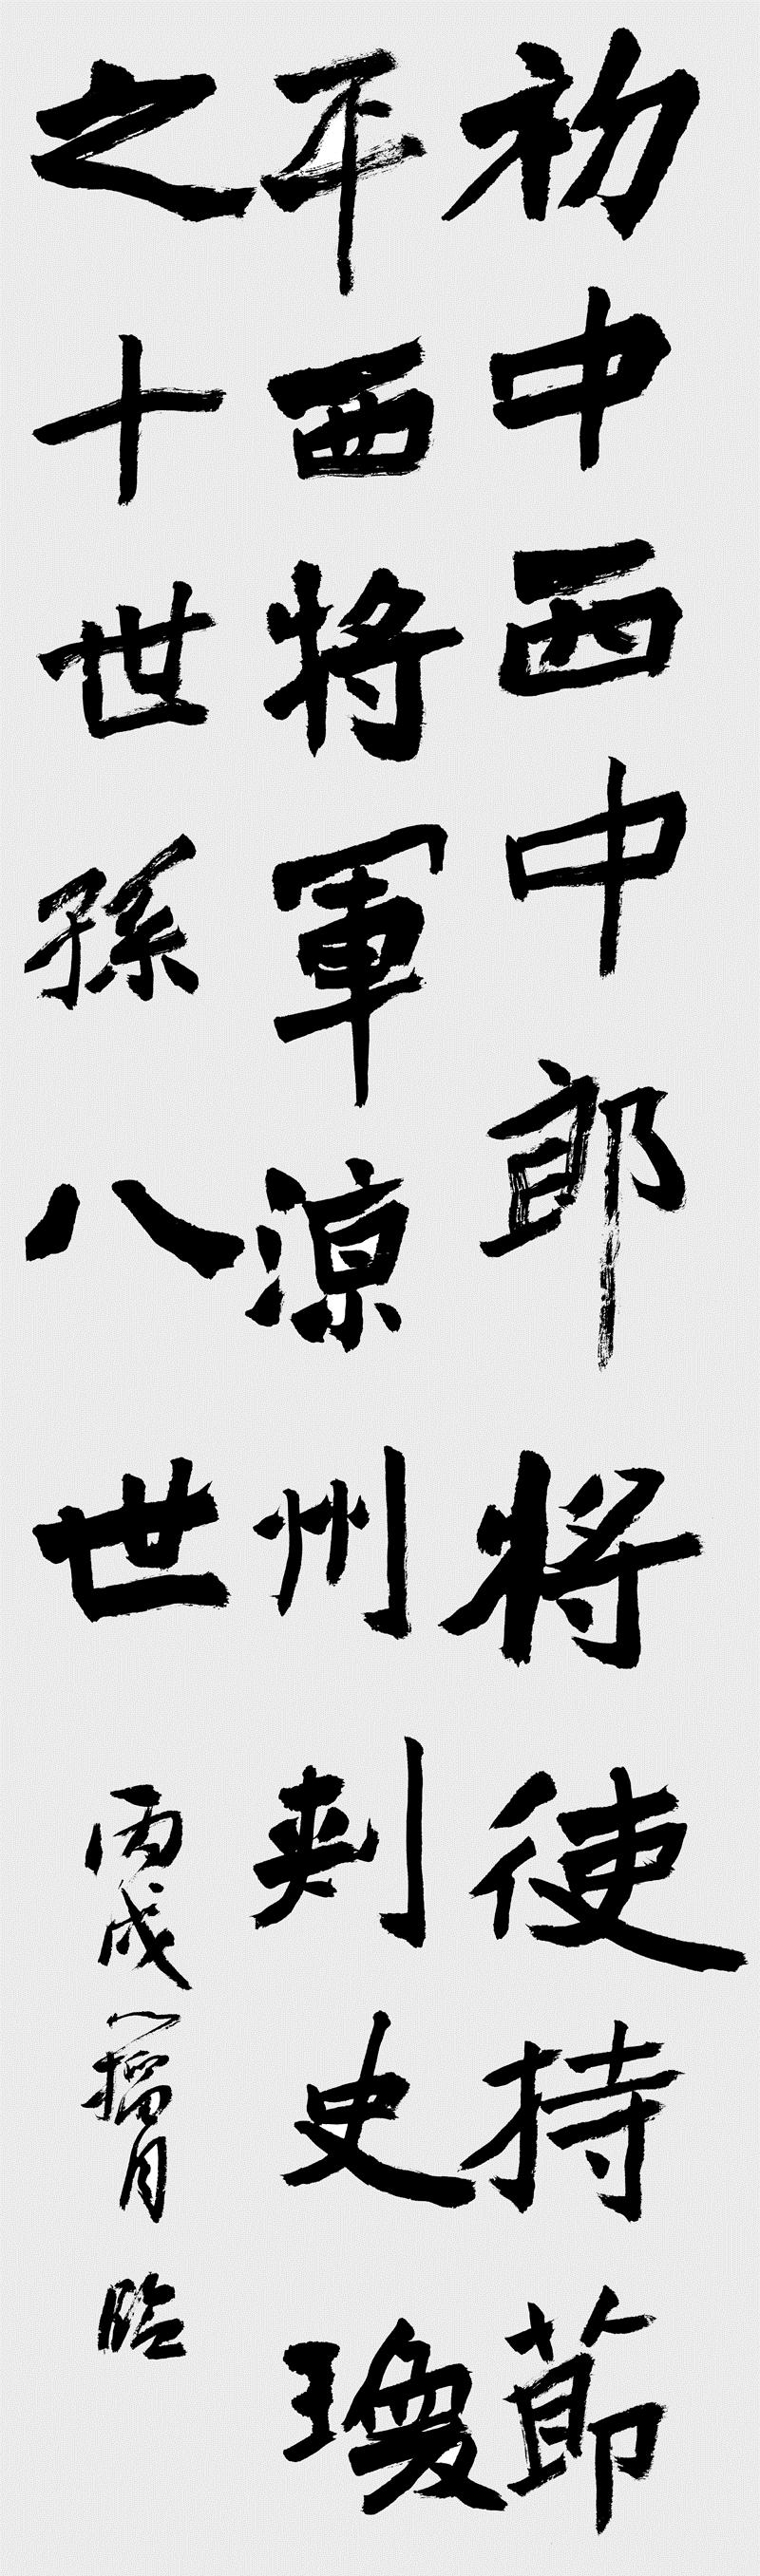 初中西中郎将使持節
平西将軍涼州刾史瓊
之十世孫八世
丙戌籀月臨